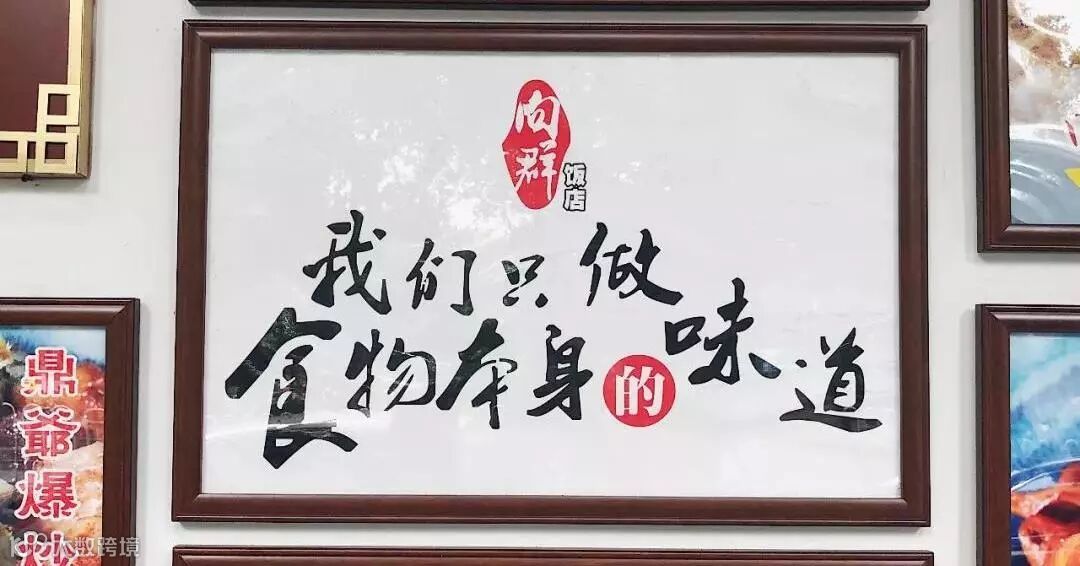 向群
饭店
我们只做
食物本身的味道
鼎爷爆炒
大数跨境